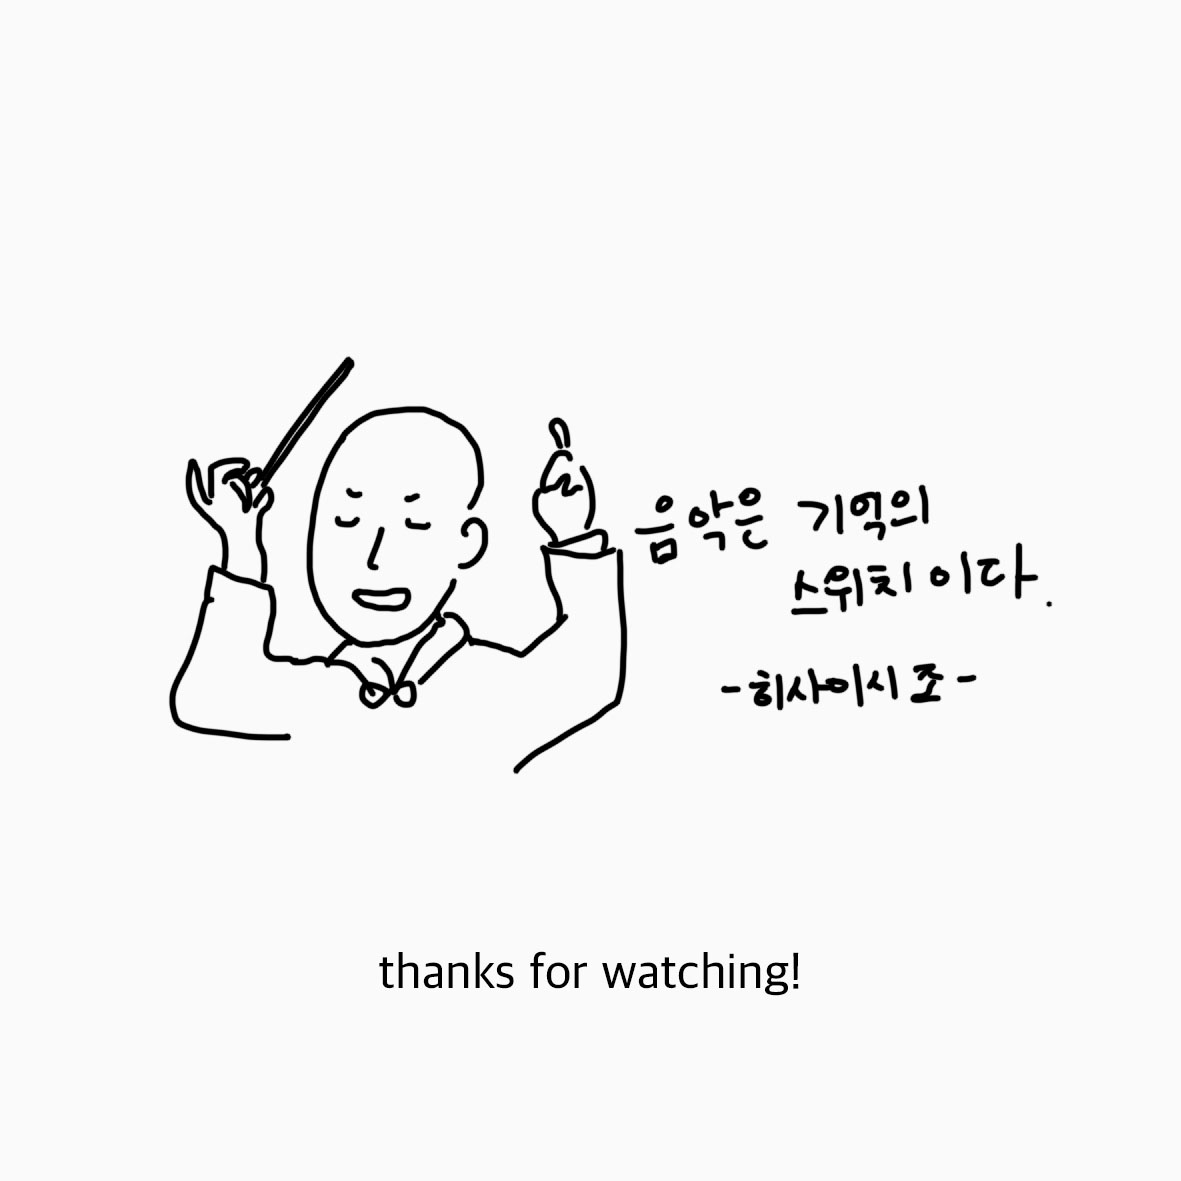 음악은 기억의
스위치 이다.
-히사이시 조-
thanks for watching!